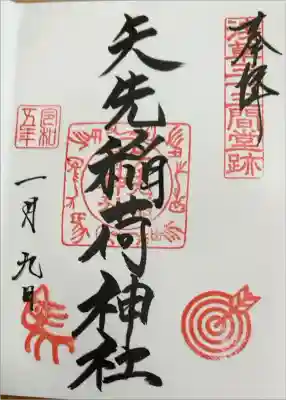 浅草三十三間堂跡
奉拝
矢先稲荷神社
令和
五年
一月九日